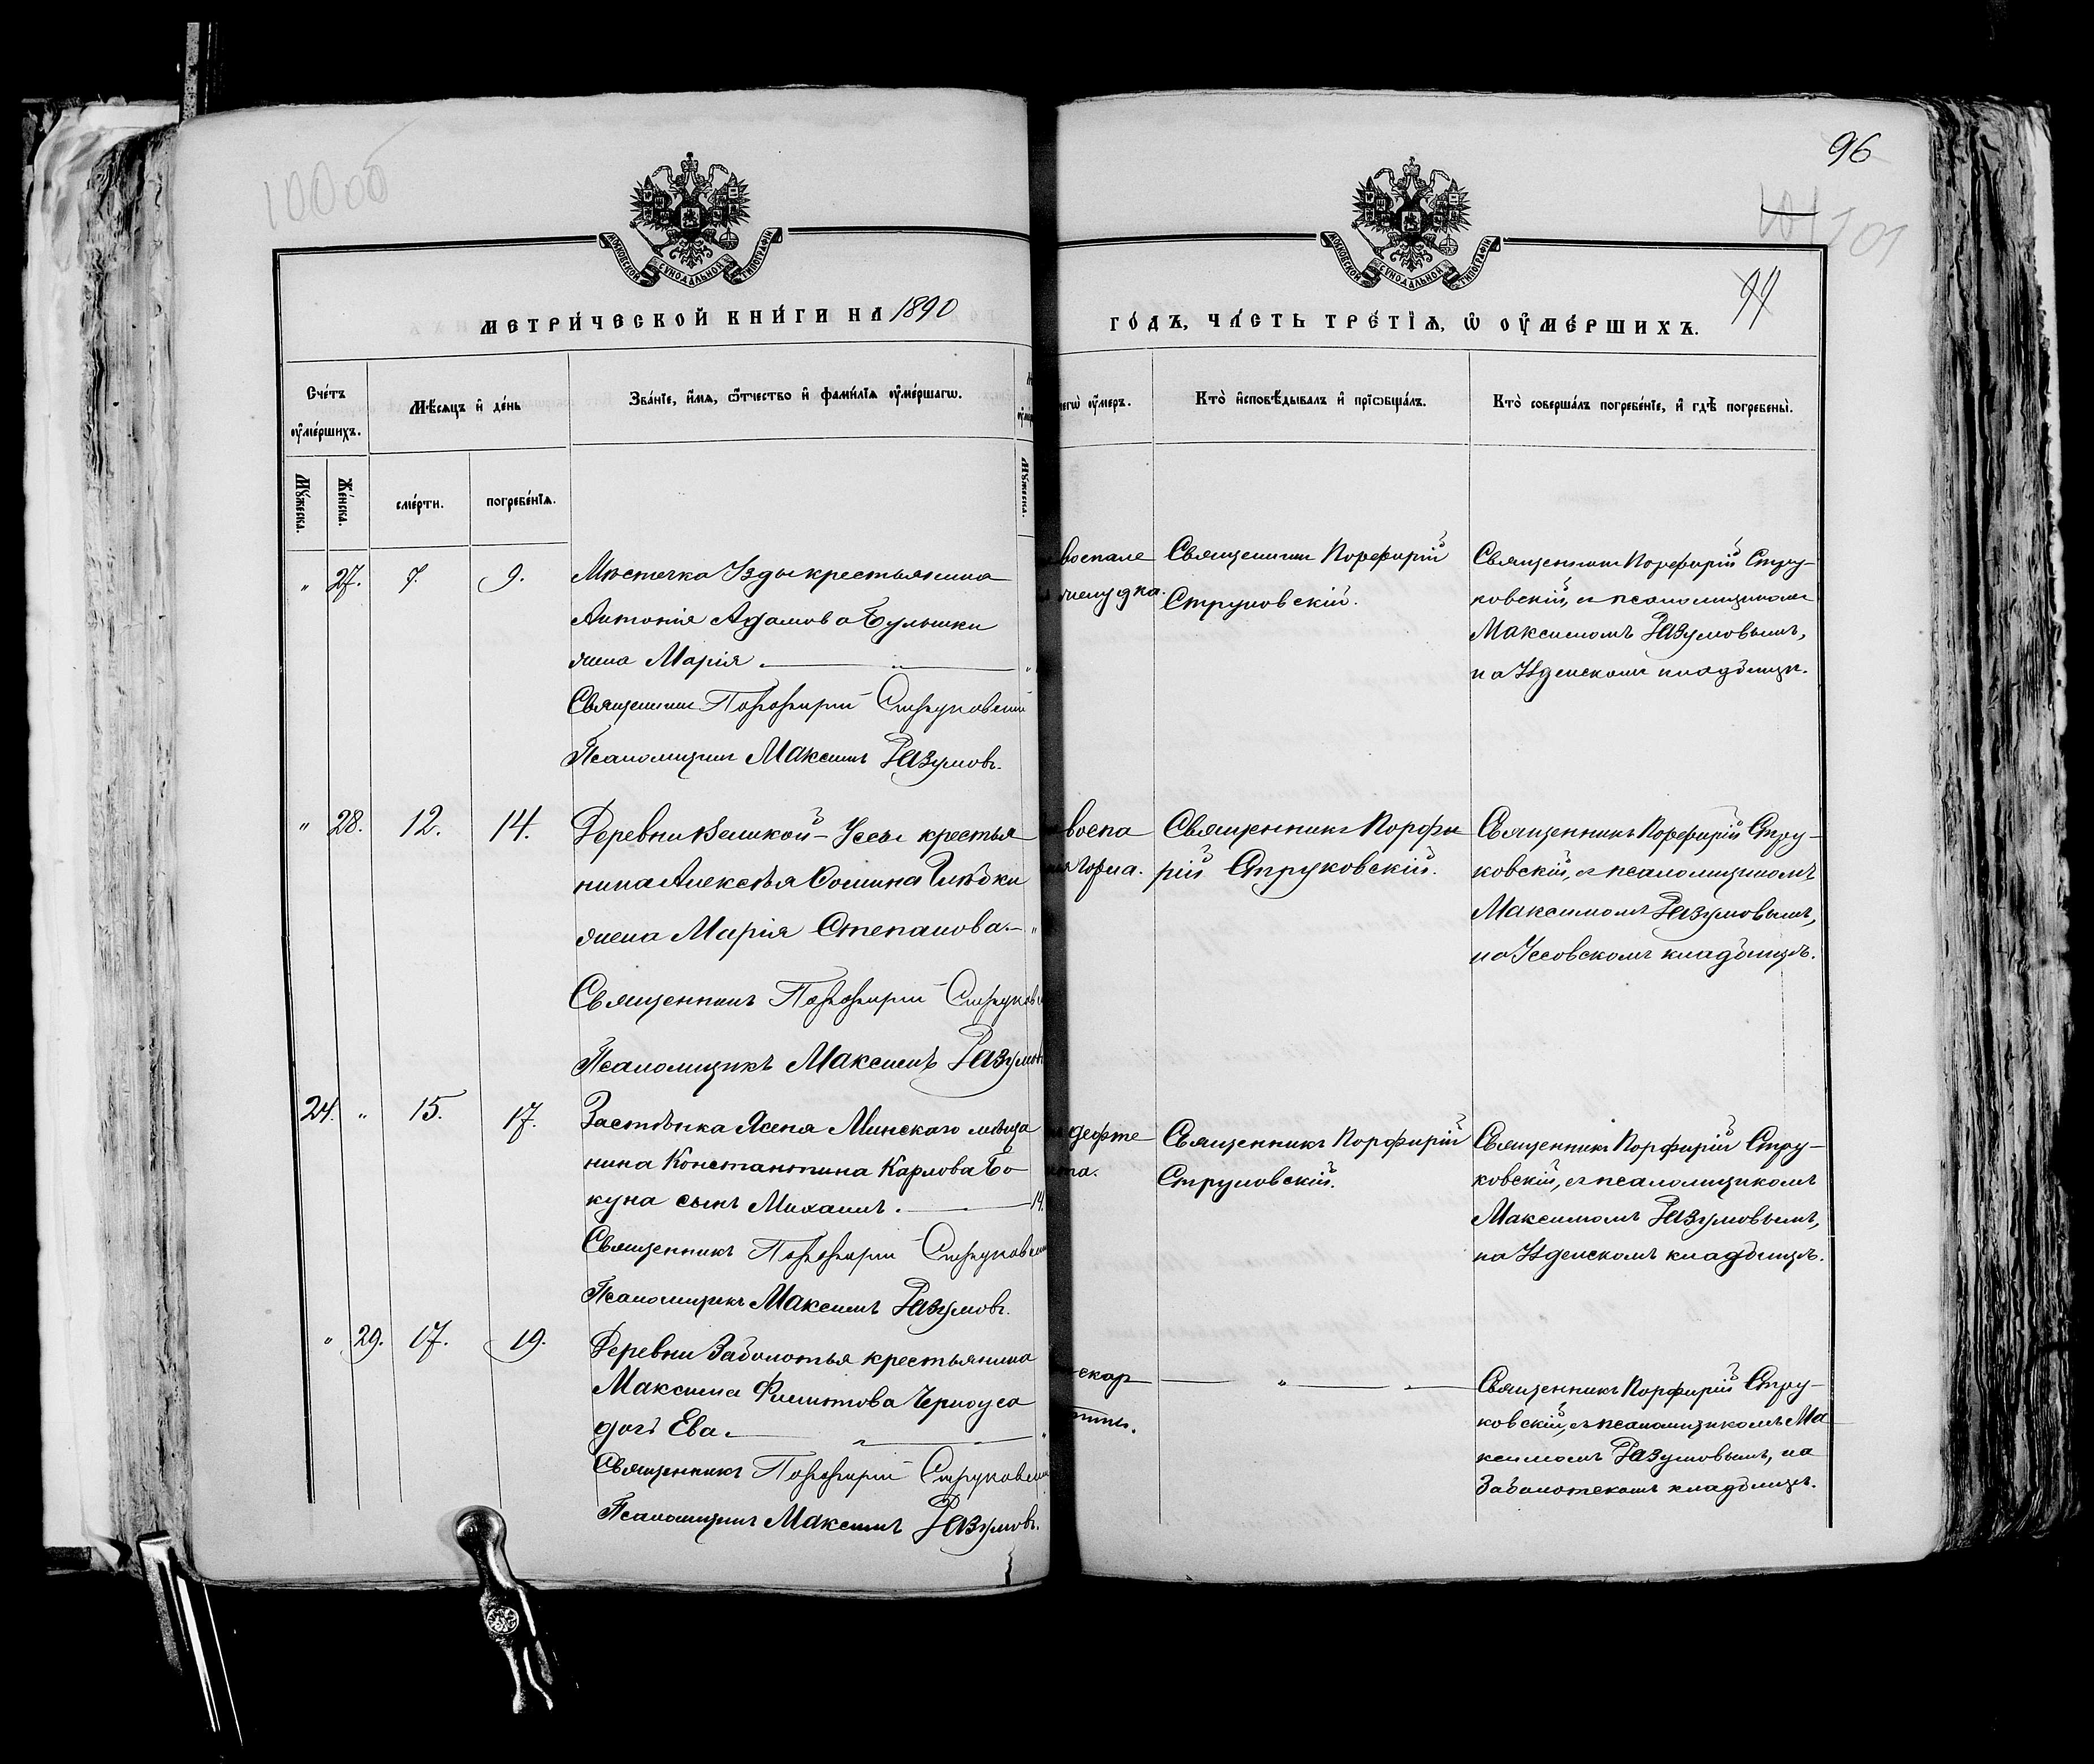 96
МОСКОВСКОЙ СѴНОДАЛЬНОЙ ТИПОГРАФІИ
МОСКОВСКОЙ СѴНОДАЛЬНОЙ ТИПОГРАФІИ
МЕТРИ́ЧЕСКОЙ КНИ́ГИ НА 1890
ГО́ДЪ, ЧА́СТЬ ТРЕ́ТІѦ, Ѡ ОУ҆МЕ́РШИХЪ.
Сче́тъ оу҆ме́ршихъ.
Мѣ́сяцъ и҆ де́нь
Зва́нїе, и҆́мѧ, ѻ҆́тчество и҆ фами́лїѧ оу҆ме́ршагѡ.
чегѡ̀ оу҆́меръ.
Кто̀ и҆сповѣ́дывалъ и҆ прїѡбща́лъ.
Кто̀ соверша́лъ погребе́нїе, и҆ гдѣ̀ погребены̀.
Мꙋ́жеска.
Же́нска.
сме́рти.
погребе́нїѧ.
Мꙋ́жеска.
„ 27. 7. 9. Мѣстечка Узды крестьянина
Антонія Адамова Булышки
жена Марія.
Священникъ Порфирій Струковскій
Псаломщикъ Максимъ Разумовъ.
воспале
желудка.
Священникъ Порфирій
Струковскій.
Священникъ Порфирій Стру-
ковскій, съ псаломщикомъ
Максимомъ Разумовымъ,
на Узденскомъ кладбищѣ.
„ 28. 12. 14. Деревни Великой-Уссы крестья
нина Алексѣя Ѳомина Глѣбки
жена Марія Степанова.
Священникъ Порфирій Струковс
Псаломщикъ Максимъ Разумов
воспа
горла.
Священникъ Порфи
рій Струковскій.
Священникъ Порфирій Стру-
ковскій, съ псаломщикомъ
Максимомъ Разумовымъ,
на Уссовскомъ кладбищѣ.
24. „ 15. 17. Застѣнка Ясеня Минскаго мѣща
нина Константина Карлова Бо
куна сынъ Михаилъ. 14.
Священникъ Порфирій Струковскі
Псаломщикъ Максимъ Разумовъ.
дефте
ита.
Священникъ Порфирій
Струковскій.
Священникъ Порфирій Стру-
ковскій, съ псаломщикомъ
Максимомъ Разумовымъ,
на Узденскомъ кладбищѣ.
„ 29. 17. 19. Деревни Заболотья крестьянина
Максима Филиппова Черноуса
дочь Ева.
Священникъ Порфирій Струковскі
Псаломщикъ Максимъ Разумовъ.
скар
тины.
„
Священникъ Порфирій Стру-
ковскій, съ псаломщикомъ Ма
ксимомъ Разумовымъ, на
Заболотскомъ кладбищѣ.